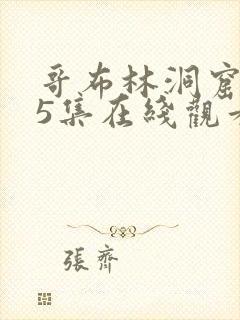 哥布林洞窟
5集在綫觀看
張齊